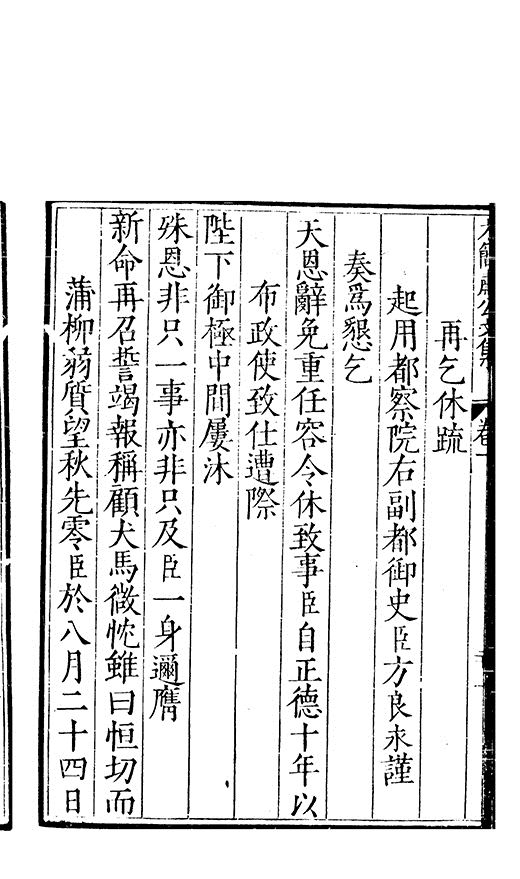 再乞休疏
起用都察院右副都御史臣方良永謹
奏爲懇乞
天恩辭免重任容令休致事臣自正德十年以
布政使致仕遭際
陛下御極中間屢沐
殊恩非只一事亦非只及臣一身邇膺
新命再召誓竭報稱顧犬馬微忱雖曰恒切而
蒲柳弱質望秋先零臣於八月二十四日